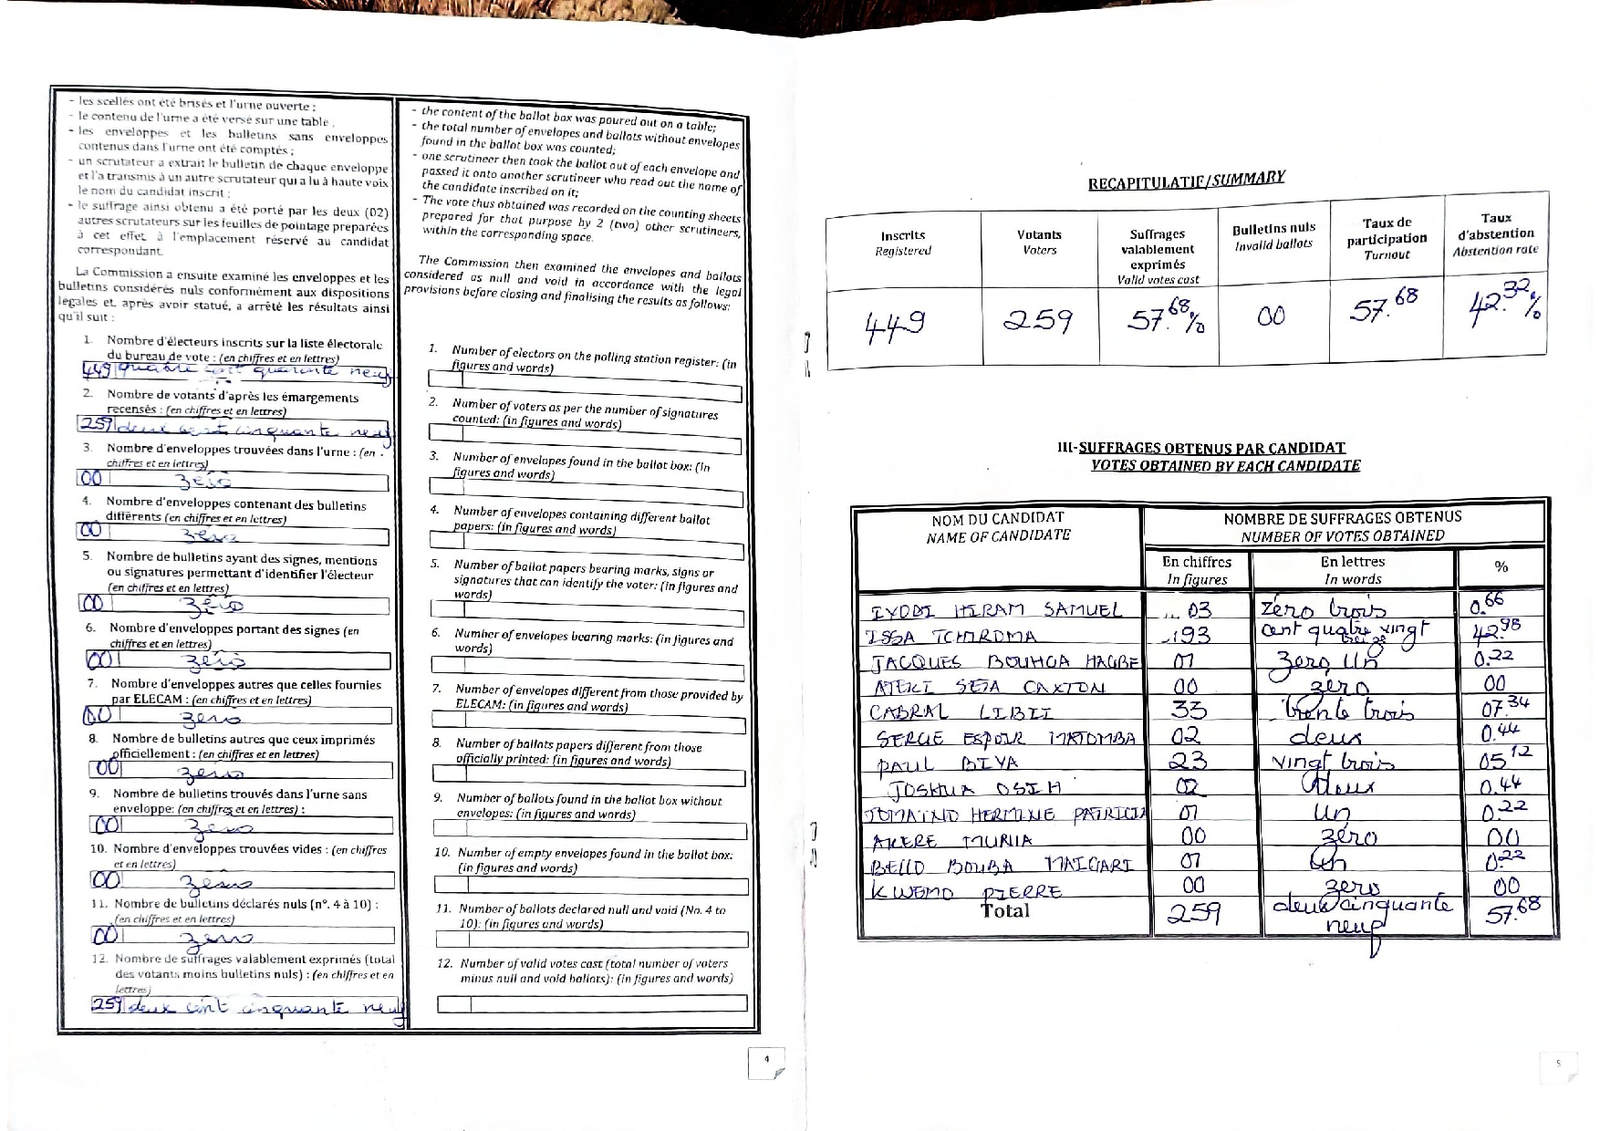 - les scellés ont été brisés et l'urne ouverte ;
- le contenu de l'urne a été versé sur une table ;
- les enveloppes et les bulletins sans enveloppes
contenus dans l'urne ont été comptés ;
- un scrutateur a extrait le bulletin de chaque enveloppe
et l'a transmis à un autre scrutateur qui a lu à haute voix
le nom du candidat inscrit ;
- le suffrage ainsi obtenu a été porté par les deux (02)
autres scrutateurs sur les feuilles de pointage préparées
à cet effet à l'emplacement réservé au candidat
correspondant.
La Commission a ensuite examiné les enveloppes et les
bulletins considérés nuls conformément aux dispositions
légales et, après avoir statué, a arrêté les résultats ainsi
qu'il suit :
1. Nombre d'électeurs inscrits sur la liste électorale
du bureau de vote : (en chiffres et en lettres)
449 quatre cent quarante neuf
2. Nombre de votants d'après les émargements
recensés : (en chiffres et en lettres)
259 deux cent cinquante neuf
3. Nombre d'enveloppes trouvées dans l'urne : (en
chiffres et en lettres)
00 zéro
4. Nombre d'enveloppes contenant des bulletins
différents (en chiffres et en lettres)
00 zéro
5. Nombre de bulletins ayant des signes, mentions
ou signatures permettant d'identifier l'électeur
(en chiffres et en lettres)
00 zéro
6. Nombre d'enveloppes portant des signes (en
chiffres et en lettres)
00 zéro
7. Nombre d'enveloppes autres que celles fournies
par ELECAM : (en chiffres et en lettres)
00 zéro
8. Nombre de bulletins autres que ceux imprimés
officiellement : (en chiffres et en lettres)
00 zéro
9. Nombre de bulletins trouvés dans l'urne sans
enveloppe: (en chiffres et en lettres) :
00 zéro
10. Nombre d'enveloppes trouvées vides : (en chiffres
et en lettres)
00 zéro
11. Nombre de bulletins déclarés nuls (n°. 4 à 10) :
(en chiffres et en lettres)
00 zéro
12. Nombre de suffrages valablement exprimés (total
des votants moins bulletins nuls) : (en chiffres et en
lettres)
259 deux cent cinquante neuf
- the content of the ballot box was poured out on a table;
- the total number of envelopes and ballots without envelopes
found in the ballot box was counted;
- one scrutineer then took the ballot out of each envelope and
passed it onto another scrutineer who read out the name of
the candidate inscribed on it;
- The vote thus obtained was recorded on the counting sheets
prepared for that purpose by 2 (two) other scrutineers,
within the corresponding space.
The Commission then examined the envelopes and ballots
considered as null and void in accordance with the legal
provisions before closing and finalising the results as follows:
1. Number of electors on the polling station register: (in
figures and words)
2. Number of voters as per the number of signatures
counted: (in figures and words)
3. Number of envelopes found in the ballot box: (in
figures and words)
4. Number of envelopes containing different ballot
papers: (in figures and words)
5. Number of ballot papers bearing marks, signs or
signatures that can identify the voter: (in figures and
words)
6. Number of envelopes bearing marks: (in figures and
words)
7. Number of envelopes different from those provided by
ELECAM: (in figures and words)
8. Number of ballots papers different from those
officially printed: (in figures and words)
9. Number of ballots found in the ballot box without
envelopes: (in figures and words)
10. Number of empty envelopes found in the ballot box:
(in figures and words)
11. Number of ballots declared null and void (No. 4 to
10): (in figures and words)
12. Number of valid votes cast (total number of voters
minus null and void ballots): (in figures and words)
4
RECAPITULATIF/SUMMARY
Inscrits Registered | Votants Voters | Suffrages valablement exprimés Valid votes cast | Bulletins nuls Invalid ballots | Taux de participation Turnout | Taux d'abstention Abstention rate
449 259 57.68% 00 57.68 42.32%
III-SUFFRAGES OBTENUS PAR CANDIDAT
VOTES OBTAINED BY EACH CANDIDATE
NOM DU CANDIDAT NOMBRE DE SUFFRAGES OBTENUS
NAME OF CANDIDATE NUMBER OF VOTES OBTAINED
En chiffres En lettres %
In figures In words
IYODI HIRAM SAMUEL ... 03 zéro trois 0.66
ISSA TCHIROMA .193 cent quatre vingt treize 42.98
JACQUES BOUHGA HAGBE 01 zéro un 0.22
ATEKI SETA CAXTON 00 zéro 00
CABRAL LIBII 33 trente trois 07.34
SERGE ESPOIR MATOMBA 02 deux 0.44
PAUL BIYA 23 vingt trois 05.12
JOSHUA OSIH 02 deux 0.44
TOMAINO HERMINE PATRICIA 01 un 0.22
AKERE MUNIA 00 zéro 00
BELLO BOUBA MAIGARI 01 un 0.22
KWEMO PIERRE 00 zéro 00
Total 259 deux cinquante neuf 57.68
5